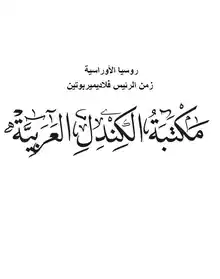 روسيا الأوراسية
زمن الرئيس فلاديمير بوتين
مَكتبَةُ الكِندِلِ العَرَبيَّة